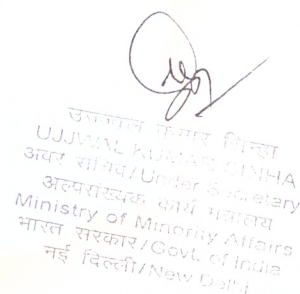 उज्जवल कुमार सिन्हा
UJJWAL KUMAR SINHA
अवर सचिव/Under Secretary
अल्पसंख्यक कार्य मंत्रालय
Ministry of Minority Affairs
भारत सरकार/Govt. of India
नई दिल्ली/New Delhi